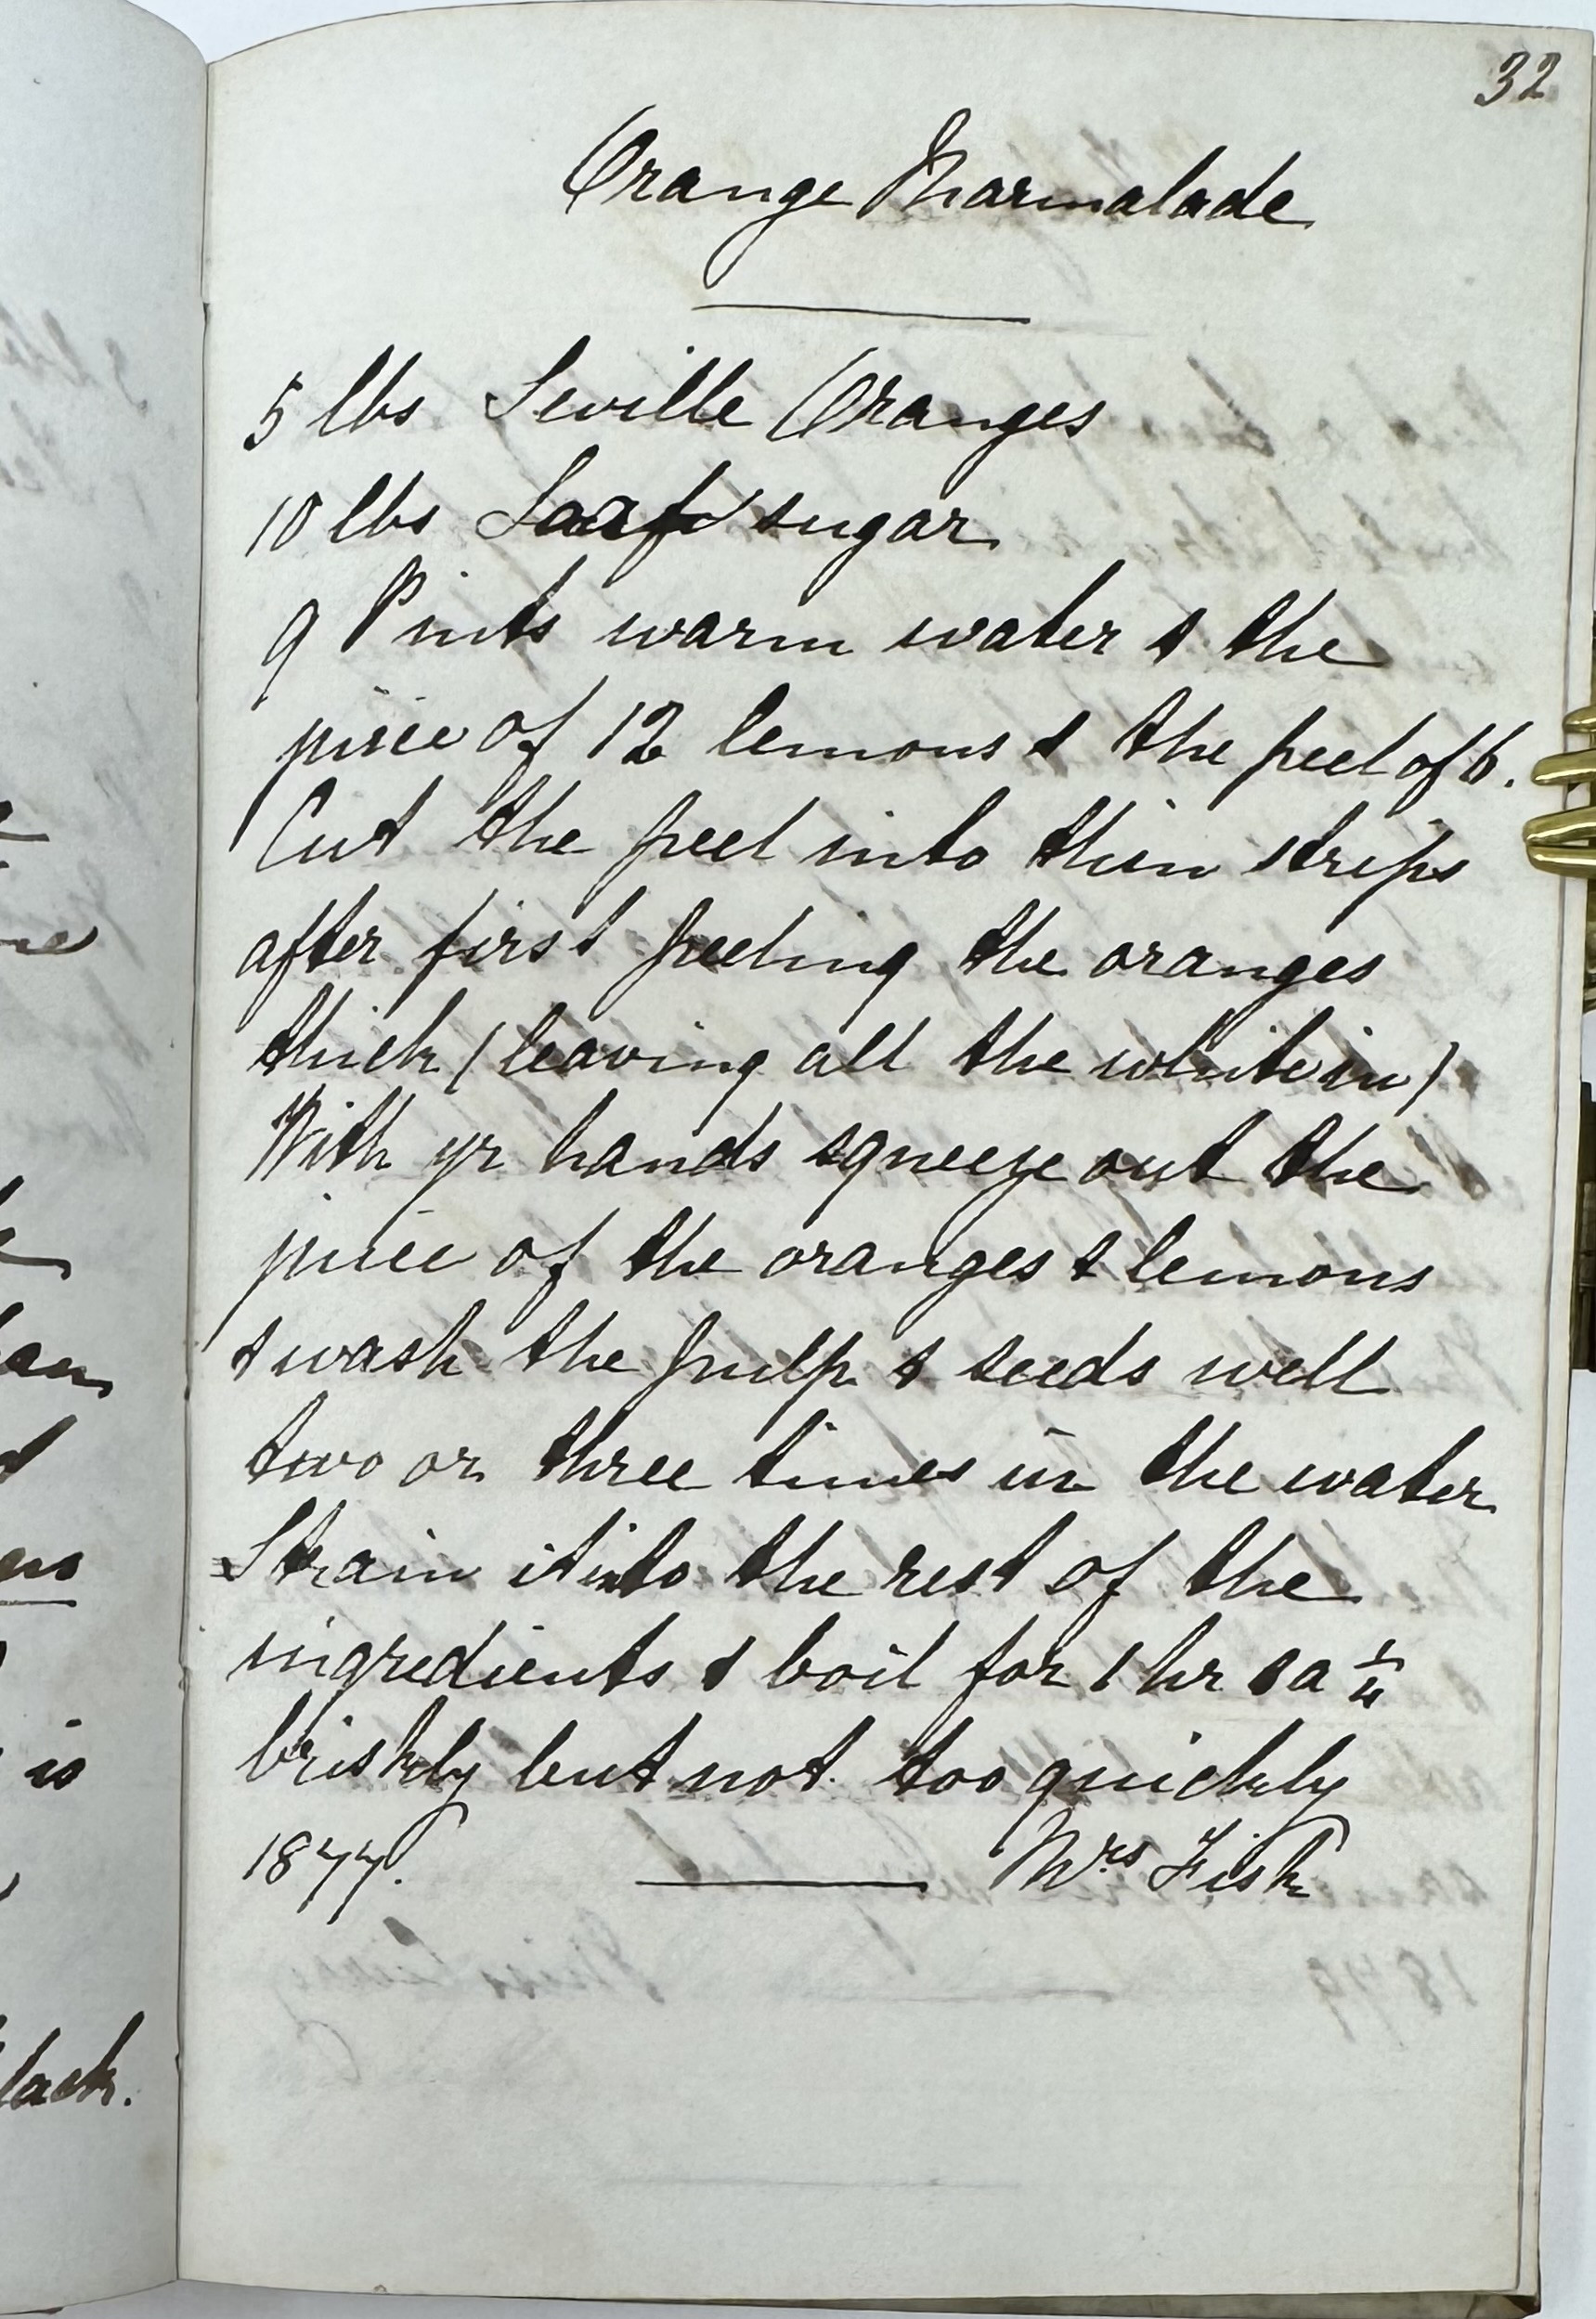 32
Orange Marmalade
5 lbs Seville Oranges
10 lbs Loaf sugar
9 Pints warm water & the
juice of 12 lemons & the peel of 6.
Cut the peel into thin strips
after first peeling the oranges
thick (leaving all the white in)
With yr hands squeeze out the
juice of the oranges & lemons
& wash the pulp & seeds well
two or three times in the water
Strain it into the rest of the
ingredients & boil for 1 hr & a 1/4
briskly but not too quickly
1877. Mrs Fisk
is
lack.